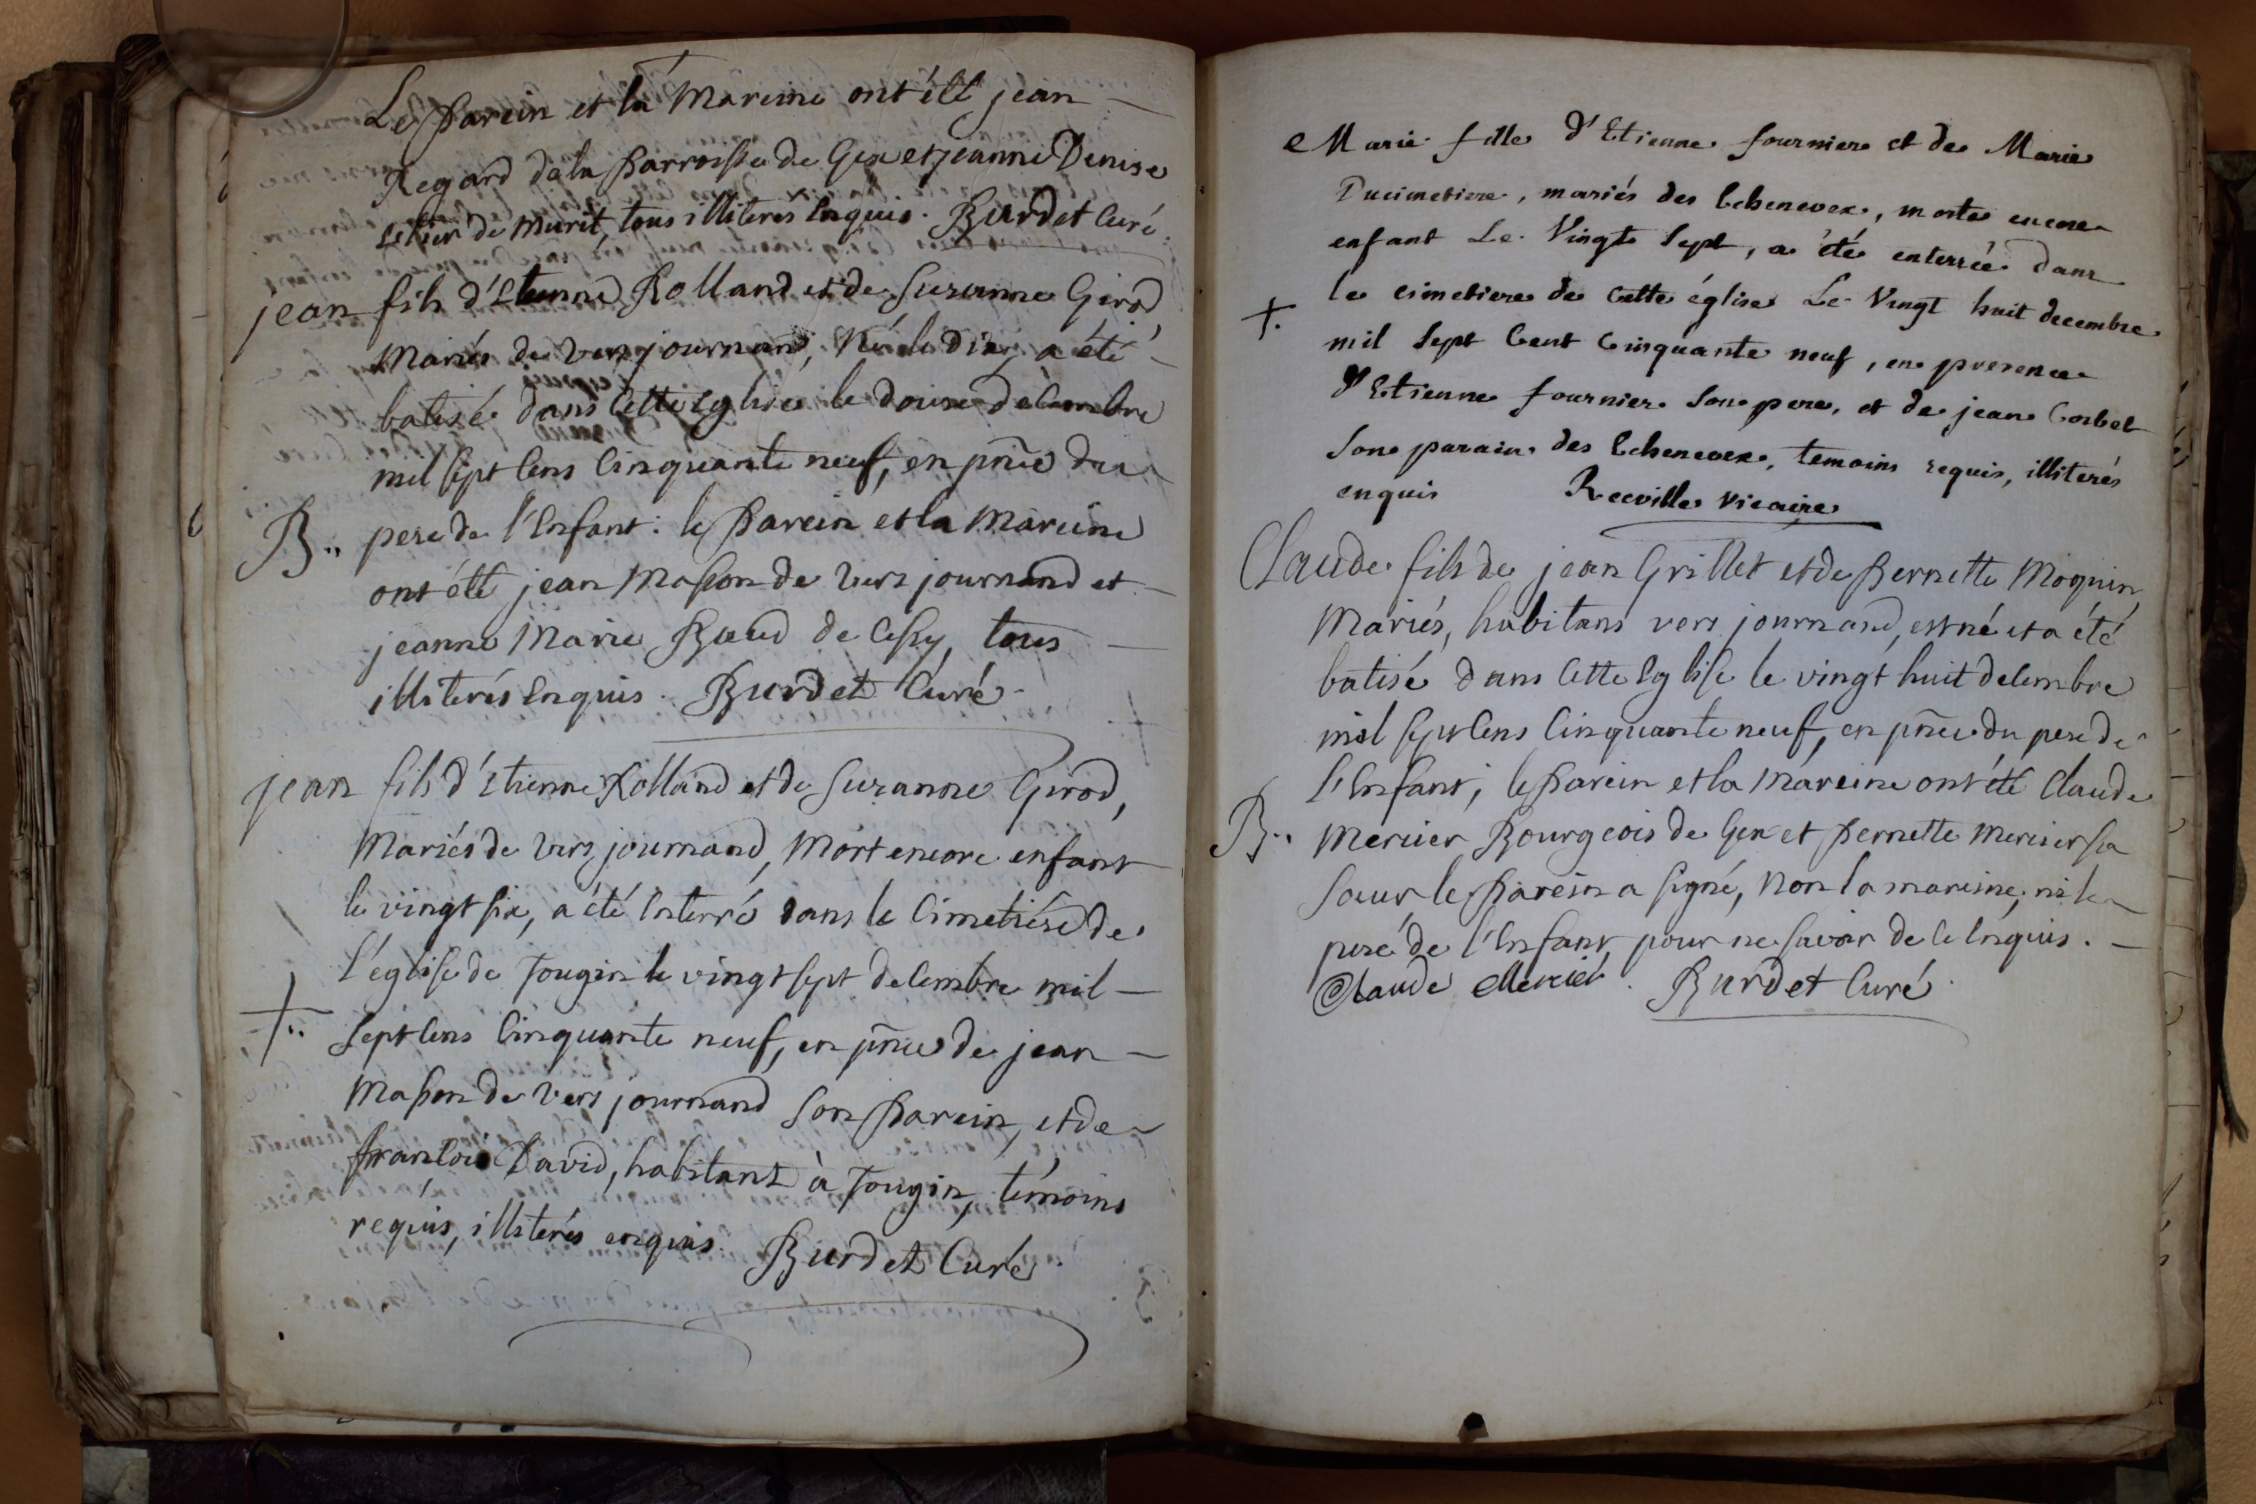 Le parein et la Mareine ont été jean
Regard de la parroisse de Gex et jeanne Denise
de Murit, tous illiterés enquis. Burdet Curé.
jean fils d'Etienne Rolland et de Suzanne Girod
Mariés de vers journand, Né le dix, a été
batisé dans cette Eglise le douze decembre
mil sept cens cinquante neuf, en pñce du
B.. pere de l'Enfant: le parein et la Mareine
ont été jean Masson de vers journand et
jeanne Marie de Cessy, tous
illiterés Enquis. Burdet Curé.
jean fils d'Etienne Rolland et de Suzanne Girod,
Mariés de vers journand, Mort encore enfant
le vingt six, a été Enterré dans le Cimetiére de
l'eglise de Tougin le vingt sept decembre mil
+.. sept cens cinquante neuf, en pñce de jean
Masson de vers journand son parein, et de
françois David, habitant à Tougin, témoins
requis, illiterés enquis. Burdet Curé
Marie fille d'Etienne fournier et de Marie
Ducimetiere, mariés des Echenevex, morte encore
enfant Le Vingt Sept, a été enterrée dans
le cimetiere de cette église Le Vingt huit decembre
+. mil Sept Cent Cinquante neuf, en presence
d'Etienne fournier Son pere, et de jean Corbet
Son parain des Echenevex, temoins requis, illiterés
enquis Reville Vicaire
Claude fils de jean Grillet et de Pernette Moquin
Mariés, habitans vers journand, est né et a été
batisé dans cette Eglise le vingt huit decembre
mil sept cens cinquante neuf, en pñce du pere de
l'Enfant; le parein et la Mareine ont été Claude
B.. Mercier Bourgeois de Gex et Pernette Mercier sa
soeur le parein a signé, Non la mareine, ni le
pere de l'Enfant pour ne savoir de ce Enquis.
Claude Mercier. Burdet Curé.